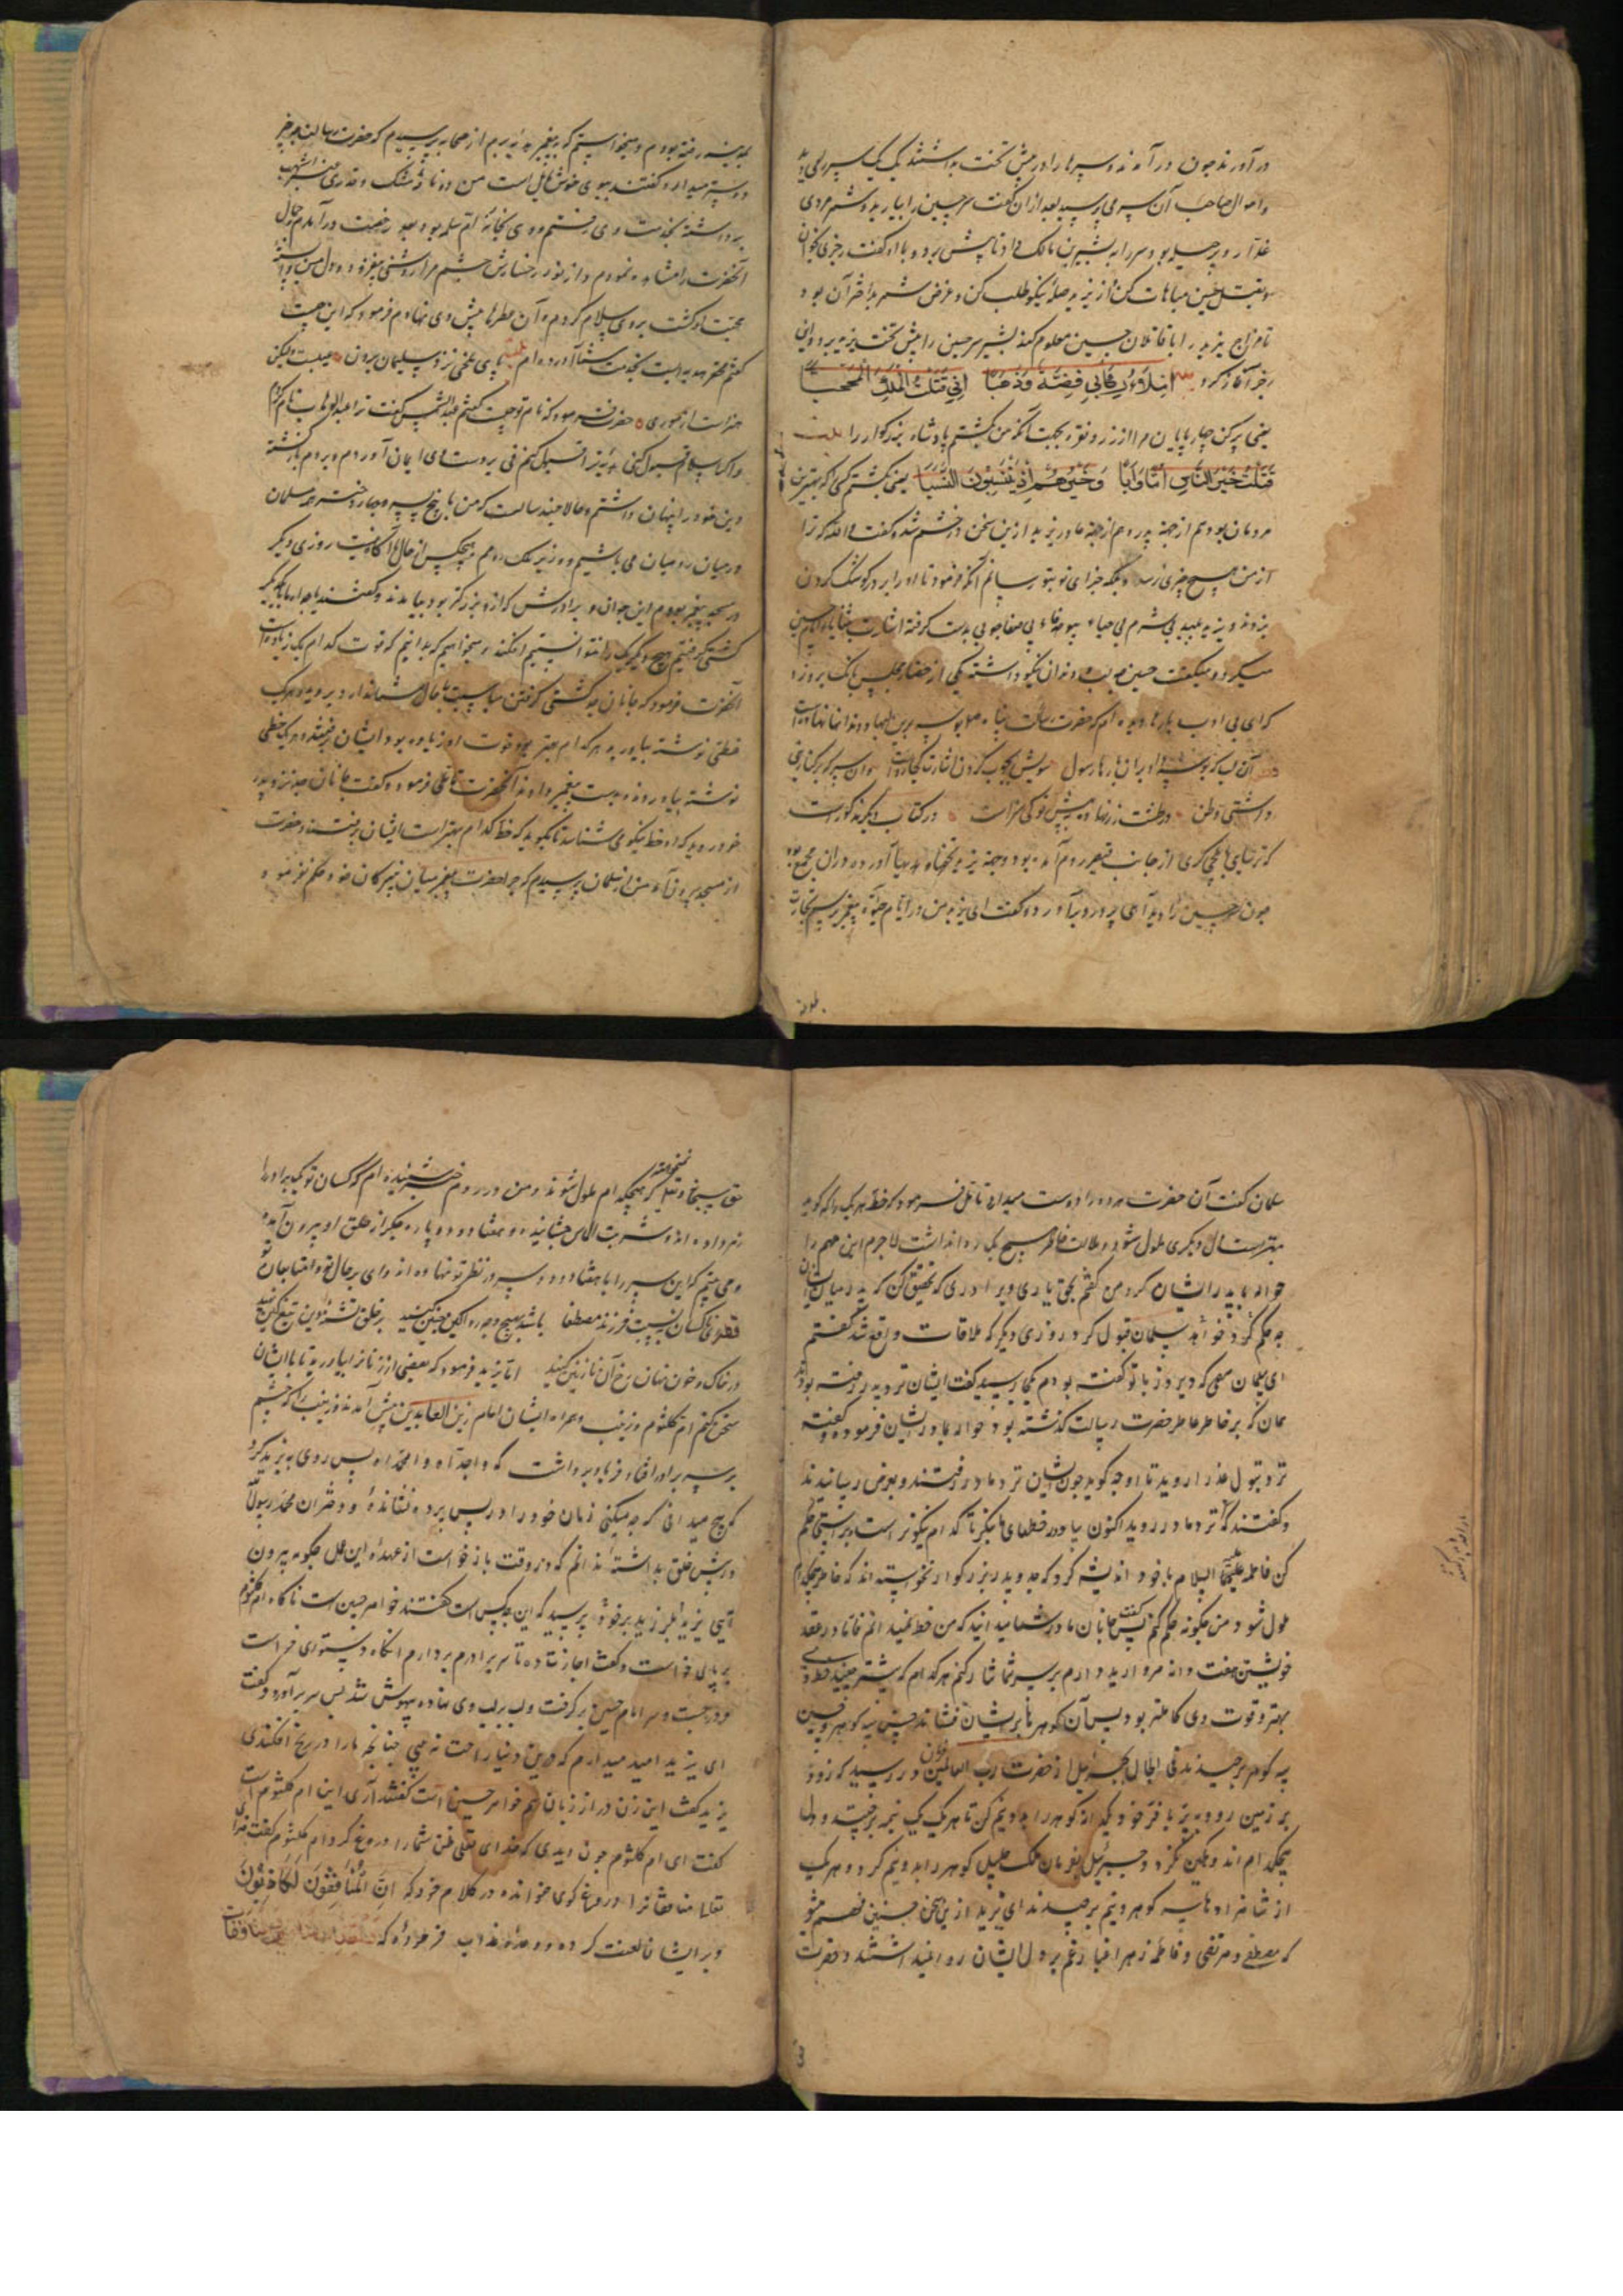 در آوردند چون در آمدند و سپرها را در پیش تخت بداشتند یک یک سپر را می دید
و احوال صاحب آن سر می پرسید بعد از آن گفت سر حسین را بیارید و شمر مردی
غدار و پر حیله بود سر را به بشیر بن مالک داد تا پیش برد و با او گفت رجزی بخوان
و بقتل حسین مباهات کن و از یزید صله نیکو طلب کن و غرض شمر بد اختر آن بود
تا مزاج یزید را با قاتلان حسین معلوم کند بشیر سر حسین را پیش تخت یزید برد و این
رجز آغاز کرد املاء رکابی فضة و ذهبا انی قتلت الملک المحجبا
یعنی پر کن چارپایان مرا از زر و نقره بجهت آنکه من کشتم پادشاه بزرگوار را
قتلت خیر الناس اما و ابا و خیرهم اذ ینسبون النسبا یعنی کشتم کسی که بهترین
مردمان بود هم از جهة پدر و هم از جهة مادر یزید ازین سخن در خشم شد و گفت والله که ترا
از من هیچ چیزی نرسد و بلکه جزای تو بتو رسانم آنگه فرمود تا او را بر در کوشک گردن
بزدند و یزید پلید بی شرم بی حیا
میکرد و میگفت حسین لب و دندان نیکو داشته یکی از حضار مجلس بانگ برو زد
که ای بی ادب بارها دیده ام که حضرت رسالت پناه بوسه برین لبها و دندانها نهاده است
آن لب که بوسه داد بران بارها رسول سویش بچوب کردن اشارت کجا رواست وان سر که بر کنار نبی
داشتی وطن در طشت زر نهاده به پیش تو کی سزاست در کتاب دیگر مذکور است
که ترسای بایلچی گری از جانب قیصر روم آمده بود و جهة یزید تحفها و هدیها آورده در آن مجمع بود
چون سر حسین را دید آهی پر درد بر آورد و گفت ای یزید من در ایام حیوة پیغمبر برسم تجارت
بمدینه رفته بودم و میخواستم که به پیغمبر هدیه برم از صحابه پرسیدم که حضرت رسالت چه چیز
دوستر میدارد گفتند ببوی خوش مایل است من دو نافه مشک و قدری عنبر اشهب
برداشته بخدمت وی رفتم و وی بخانه ام سلمه بود بعد رخصت در آمدم جمال
آنحضرت را مشاهده نمودم و از نور رخسارش چشم مرا روشنی بیفزود و دل من وابسته
محبت او گشت بروی سلام کردم و آن عطرها پیش وی نهادم فرمود که این چیست
گفتم محقر هدیه ایست بخدمت شما آورده ام پای ملخی نزد سلیمان بردن عیبست ولیکن
هنر است از موری حضرت فرمود که نام تو چیست گفتم عبد الشمس گفت ترا عبد الوهاب نام کردم
و اگر اسلام قبول کنی هدیه ترا قبول کنم فی الحال بر دست وی ایمان آوردم و بروم بازگشته
دین خود را پنهان داشتم و حالا چند سالست که من با پنج پسر و چهار دختر همه مسلمان
در میان رومیان می باشیم و وزیر ملک رومم هیچکس از حال ما آگاه نیست روزی دیگر
در مسجد پیغمبر بودم این جوان و برادرش که از و بزرگتر بود بیامدند و گفتند یا جداه ما با یکدیگر
کشتی گرفتیم هیچ یک دیگر را نتوانستیم افکند میخواهیم که بدانیم که قوت کدام یک زیاده است
آنحضرت فرمود که جانان جد کشتی گرفتن مناسبت با حال شما ندارد بروید و هر یک
خطی نوشته بیاورید هر کدام بهتر بود قوت او زیاده بود ایشان برفتند و هر یک خطی
نوشته بیاوردند و بدست پیغمبر دادند آنحضرت تأملی فرمود و گفت جانان جد نزد پدر
خود روید که او خط نیکو می شناسد تا بگوید که خط کدام بهتر است ایشان برفتند و حضرت
از مسجد برون آمد من از سلمان پرسیدم که چرا حضرت پیغمبر میان نبیرگان خود حکم نفرمود
سلمان گفت آن حضرت هر دو را دوست میدارد تأمل فرمود که خط هر یک را که گوید
بهتر است آن دیگری ملول شود و ملالت خاطر هیچ یک روا نداشت لاجرم این مهم را
حواله با پدر ایشان کرد من گفتم بحق یاری و برادری که تحقیق کن که پدر میان ایشان
چه حکم کرد خواهد سلمان قبول کرد روزی دیگر که ملاقات واقع شد گفتم
ای سلمان مهمی که دیروز با تو گفته بودم بکجا رسید گفت ایشان نزد پدر رفته بودند
همان که بر خاطر عاطر حضرت رسالت گذشته بود حواله بمادر ایشان فرموده و گفته
نزد بتول عذرا روید تا او چه گوید چون ایشان نزد مادر رفتند و بعرض رسانیدند
و گفتند که نزد مادر روید اکنون بیا و در خطهای ما بنگر تا کدام نیکوتر است و براستی حکم
کن فاطمه علیها السلام با خود اندیشه کرد که جد و پدر بزرگوار نخواسته اند که خاطر هیچکدام
ملول شود من چگونه حکم کنم پس گفت جانان مادر شما میدانید که من خط نمیدانم فاما در عقد
خویشتن هفت دانه مروارید دارم بر سر شما نثار کنم هر کدام که بیشتر چیند خط وی
بهتر و قوت وی کاملتر بود پس آن گوهرها بر ایشان فشاند حسن سه گوهر و حسین
سه گوهر برچیدند فی الحال جبرئیل از حضرت رب العالمین فرمان در رسید که زود
بر زمین رو و به پر بافر خود یک دانه گوهر را بدو نیم کن تا هر یک یک نیمه برچینند و دل
هیچکدام اندوهگین نگردد جبرئیل بفرمان ملک جلیل گوهر را بدو نیم کرد و هر یک
از شاهزادها سه گوهر و نیم برچیدند ای یزید ازین سخن چنین فهم میشو
که مصطفی و مرتضی و فاطمه زهرا غبار غم بر دل ایشان روا نمیداشتند و حضرت
حق سبحانه و تعالی نمیخواسته که هیچکدام ملول شوند و من در روم خبر شنیده ام که کسان تو یکی برادر را
زهر داده اند و شربت الماس چشانیده و هفتاد و دو پاره جگر از حلق او برون آمده
و می بینم که این سر را با هفتاد و دو سر در نظر تو نهاده اند وای بر حال تو و اتباع تو
باشد بهیچ وجه بر حلق تشنه تیغ کین کشید
در خاک و خون نهان رخ آن نازنین کنید اما یزید فرمود که بعضی از زنان را بیارید تا با ایشان
سخن کنم ام کلثوم و زینب و همراه ایشان امام زین العابدین پیش آمدند و زینب را که چشم
بر سر برادر افتاد فریاد برداشت که واجداه وا محمداه پس روی به یزید کرد
که هیچ میدانی که چه میکنی زنان خود را در پس پرده نشانده و دختران محمد رسول الله
در پیش خلق بداشته ندانم که در وقت بازخواست از عهده این عمل چگونه بیرون
آیی یزید بلرزید بر خود پرسید که این چه کس است گفتند خواهر حسین است ناگاه ام کلثوم
بر پای خاست و گفت اجازت ده تا سر برادرم بردارم آنگاه دستوری خواست
و در جست و سر امام حسین بر گرفت و لب بر لب وی نهاده بیهوش شد پس سر بر آورد و گفت
ای یزید امید میدارم که درین دنیا راحت نه بینی چنانچه ما را در رنج افکندی
یزید گفت این زن دراز زبان هم خواهر حسین است گفتند آری این ام کلثوم است
گفت ای ام کلثوم چون دیدی که خدای تعالی ظن شما را دروغ کرد ام کلثوم گفت خدای
تعالی منافقانرا دروغ گوی خوانده در کلام خود که ان المنافقون لکاذبون
و بر ایشان لعنت کرده و وعده عذاب فرموده که